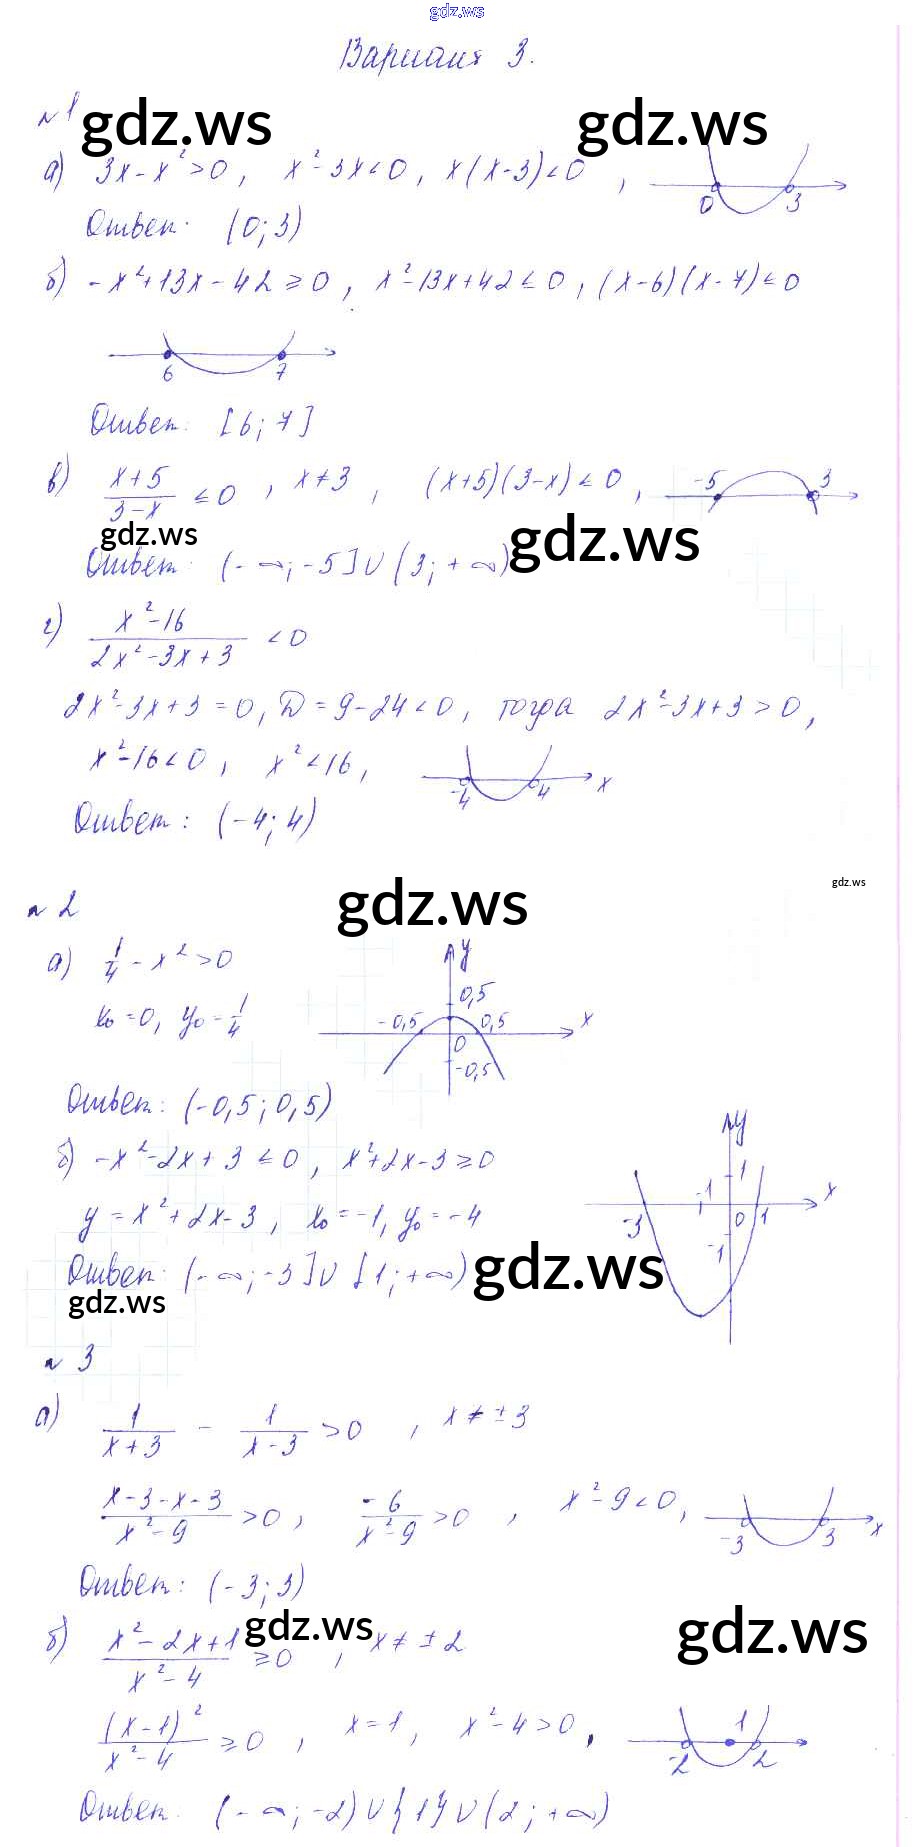 gdz.ws
Вариант 3.
№1 gdz.ws gdz.ws
а) 3x - x² > 0, x² - 3x < 0, x(x-3) < 0,
0 3
Ответ: (0; 3)
б) -x² + 13x - 42 ≥ 0, x² - 13x + 42 ≤ 0, (x-6)(x-7) ≤ 0
6 7
Ответ: [6; 7]
в) (x+5)/(3-x) ≤ 0, x ≠ 3, (x+5)(3-x) ≤ 0, -5 3
gdz.ws gdz.ws
Ответ: (-∞; -5] ∪ (3; +∞)
г) (x²-16)/(2x²-3x+3) < 0
2x²-3x+3 = 0, D = 9-24 < 0, тогда 2x²-3x+3 > 0,
x²-16 < 0, x² < 16, -4 4 x
Ответ: (-4; 4)
gdz.ws
№2 gdz.ws
а) 1/4 - x² > 0
x₀ = 0, y₀ = 1/4
y 0,5 -0,5 0,5 x 0 -0,5
Ответ: (-0,5; 0,5)
б) -x² - 2x + 3 ≤ 0, x² + 2x - 3 ≥ 0
y = x² + 2x - 3, x₀ = -1, y₀ = -4
y 1 -1 x -3 0 1 -1
Ответ: (-∞; -3] ∪ [1; +∞) gdz.ws
gdz.ws
№3
а) 1/(x+3) - 1/(x-3) > 0, x ≠ ±3
(x-3-x-3)/(x²-9) > 0, -6/(x²-9) > 0, x²-9 < 0, -3 3 x
Ответ: (-3; 3)
gdz.ws gdz.ws
б) (x²-2x+1)/(x²-4) ≥ 0, x ≠ ±2
(x-1)²/(x²-4) ≥ 0, x = 1, x²-4 > 0, -2 1 2
Ответ: (-∞; -2) ∪ {1} ∪ (2; +∞)